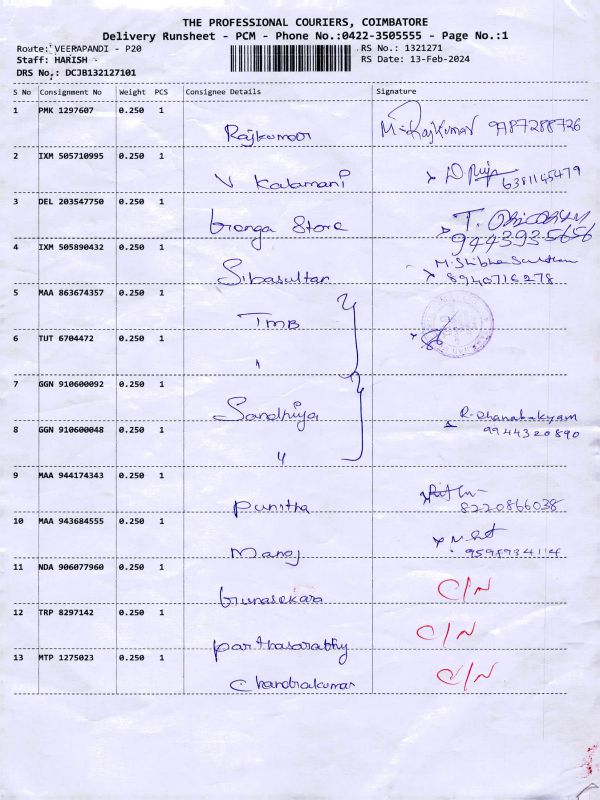 THE PROFESSIONAL COURIERS, COIMBATORE
Delivery Runsheet - PCM - Phone No.:0422-3505555 - Page No.:1
Route: VEERAPANDI - P20 RS No.: 1321271
Staff: HARISH - RS Date: 13-Feb-2024
DRS No.: DCJB132127101
S No Consignment No Weight PCS Consignee Details Signature
1 PMK 1297607 0.250 1
Rajkumar M. Rajkumar 9787288726
2 IXM 505710995 0.250 1
V Kalamani 6381145479
3 DEL 203547750 0.250 1
Ganga Store T.
9443935656
4 IXM 505890432 0.250 1 M. Shibha Sulthan
Sibasultan 8940716278
5 MAA 863674357 0.250 1
TMB
6 TUT 6704472 0.250 1
"
7 GGN 910600092 0.250 1
Sandhiya R. Dhanabakyam
8 GGN 910600048 0.250 1 9944320890
"
9 MAA 944174343 0.250 1
Punitha 8220866038
10 MAA 943684555 0.250 1
Manoj
11 NDA 906077960 0.250 1
Gunasekara C/N
12 TRP 8297142 0.250 1
Parthasarathy C/N
13 MTP 1275023 0.250 1
Chandrakumar C/N